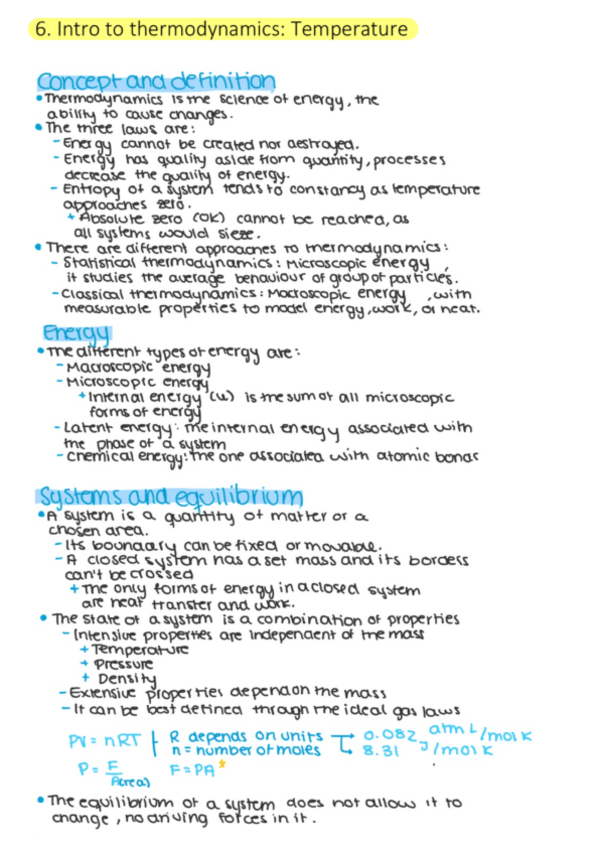 6. Intro to thermodynamics: Temperature
Concept and definition
• Thermodynamics is the science of energy, the
ability to cause changes.
• The three laws are:
- Energy cannot be created nor destroyed.
- Energy has quality aside from quantity, processes
decrease the quality of energy.
- Entropy of a system tends to constancy as temperature
approaches zero.
+ Absolute zero (0K) cannot be reached, as
all systems would sieze.
• There are different approaches to thermodynamics:
- Statistical thermodynamics: Microscopic energy,
it studies the average behaviour of group of particles.
- Classical thermodynamics: Macroscopic energy, with
measurable properties to model energy, work, or heat.
Energy
• The different types of energy are:
- Macroscopic energy
- Microscopic energy
+ Internal energy (u) is the sum of all microscopic
forms of energy
- Latent energy: the internal energy associated with
the phase of a system
- Chemical energy: the one associated with atomic bonds
Systems and equilibrium
• A system is a quantity of matter or a
chosen area.
- Its boundary can be fixed or movable.
- A closed system has a set mass and its borders
can't be crossed
+ The only forms of energy in a closed system
are heat transfer and work.
• The state of a system is a combination of properties
- Intensive properties are independent of the mass
+ Temperature
+ Pressure
+ Density
- Extensive properties depend on the mass
- It can be best defined through the ideal gas laws
PV = nRT | R depends on units → 0.082 atm L/mol K
n = number of moles ↳ 8.31 J/mol K
P = F/A(rea) F = PA*
• The equilibrium of a system does not allow it to
change, no driving forces in it.